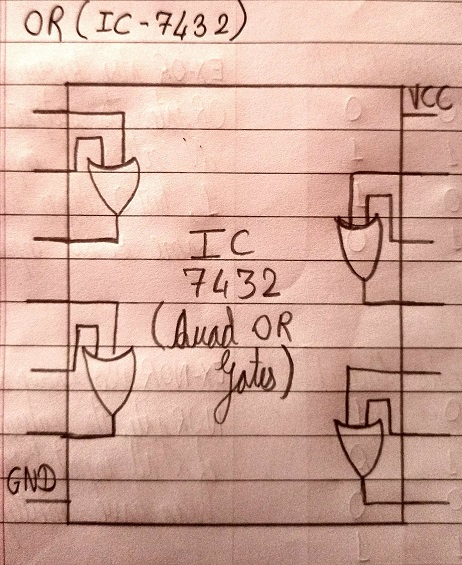 OR (IC-7432)
VCC
IC
7432
(Quad OR
Gates)
GND